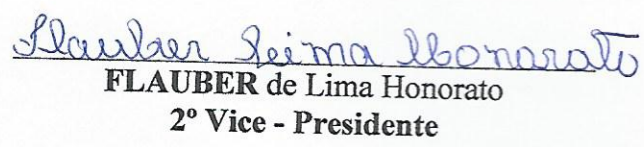 Flauber Leima Honorato
FLAUBER de Lima Honorato
2º Vice - Presidente